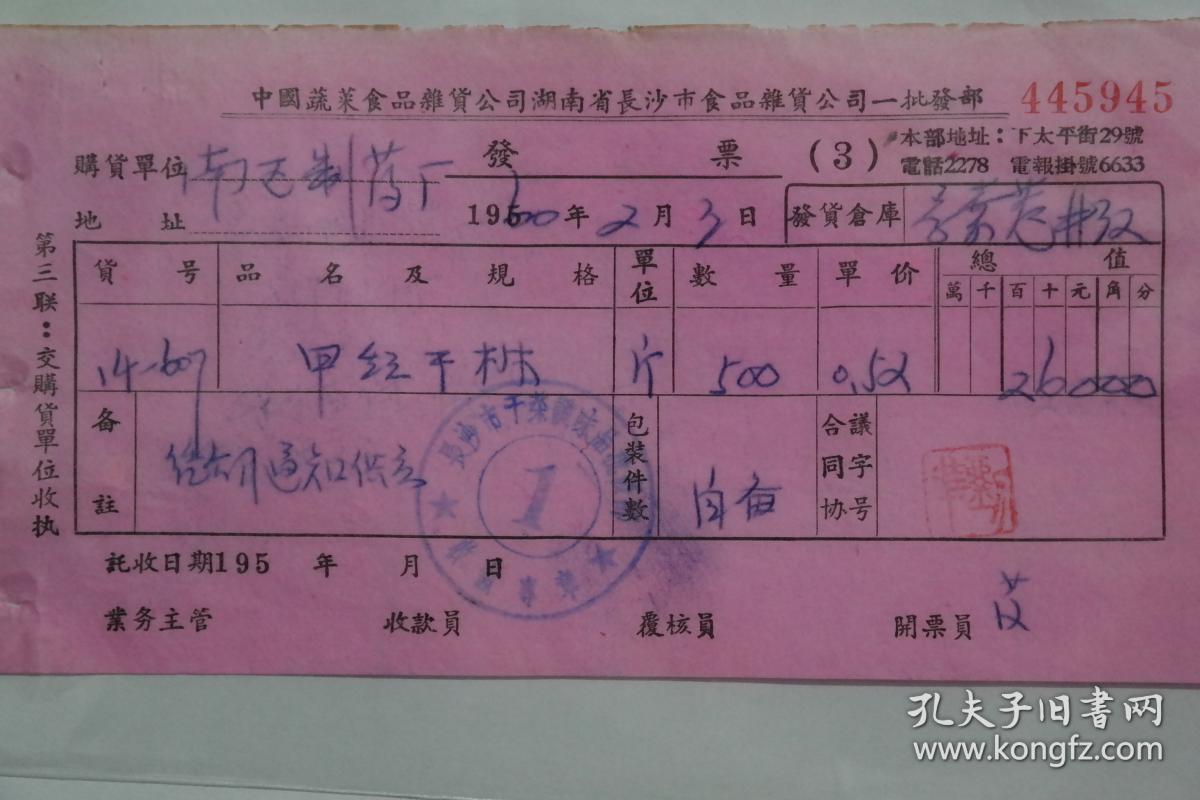 中國蔬菜食品雜貨公司湖南省長沙市食品雜貨公司一批發部 445945
購貨單位 制 厂 發票 (3) 本部地址：下太平街29號
電話2278 電報掛號6633
地址 1960年2月3日 發貨倉庫
第三联：交購貨單位收执
貨号 品名及規格 單位 數量 單价 總值
萬 千 百 十 元 角 分
14-607 甲 干 斤 500 0.52 26000
备註 通知供 包裝件數 自备 合同协議字号
長沙市干菜 1
託收日期195 年 月 日
業务主管 收款員 覆核員 開票員
孔夫子旧书网
www.kongfz.com